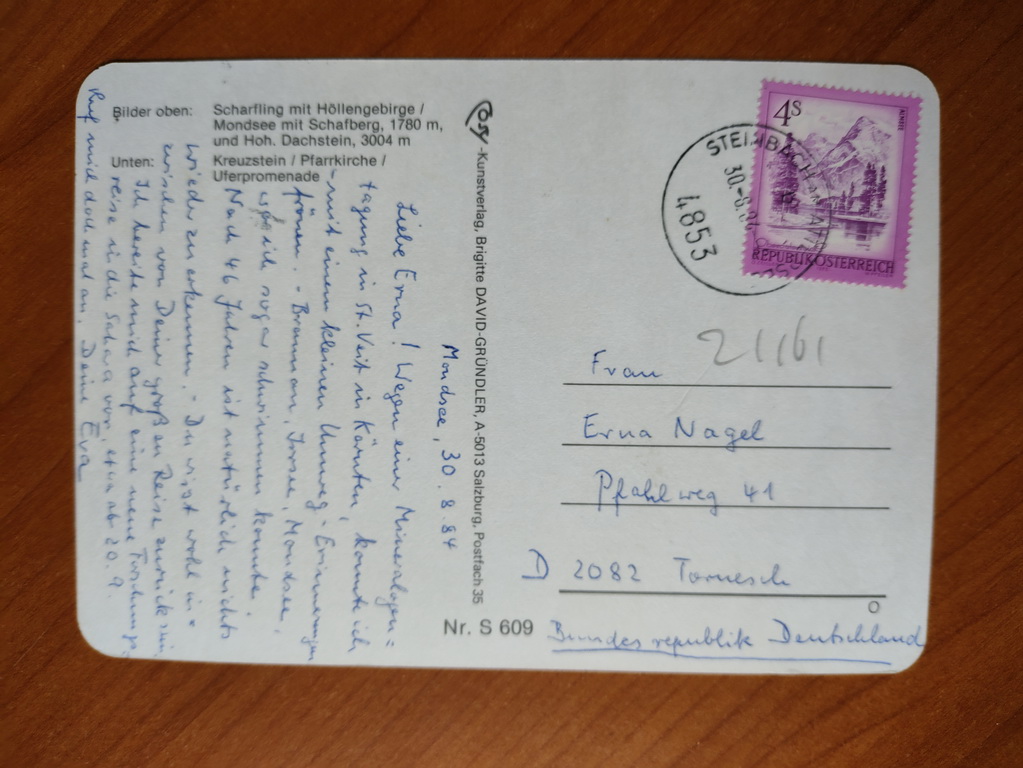 Bilder oben: Scharfling mit Höllengebirge /
Mondsee mit Schafberg, 1780 m,
und Hoh. Dachstein, 3004 m
Unten: Kreuzstein / Pfarrkirche /
Uferpromenade
Mondsee, 30.8.84
Liebe Erna! Wegen einer Mineralogen=
tagung in St. Veit in Kärnten, konnte ich
- mit einem kleinen Umweg - Erinnerungen
frönen. - Brannau, Irrsee, Mondsee,
wo ich sogar schwimmen konnte.
Nach 46 Jahren ist natürlich nichts
wieder zu erkennen. - Du wirst wohl in=
zwischen von Deiner großen Reise zurück sein.
Ich bereite mich auf eine neue Forschungs=
reise in die Sahara vor, etwa ab 20.9.
Ruf mich doch mal an. Deine Eva
-Kunstverlag, Brigitte DAVID-GRÜNDLER, A-5013 Salzburg, Postfach 35
Nr. S 609
4S
REPUBLIK ÖSTERREICH
STEINBACH am ATTERSEE
30.-8.84
4853
21/61
Frau
Erna Nagel
Pfahlweg 41
D 2082 Tornesch
Bundesrepublik Deutschland